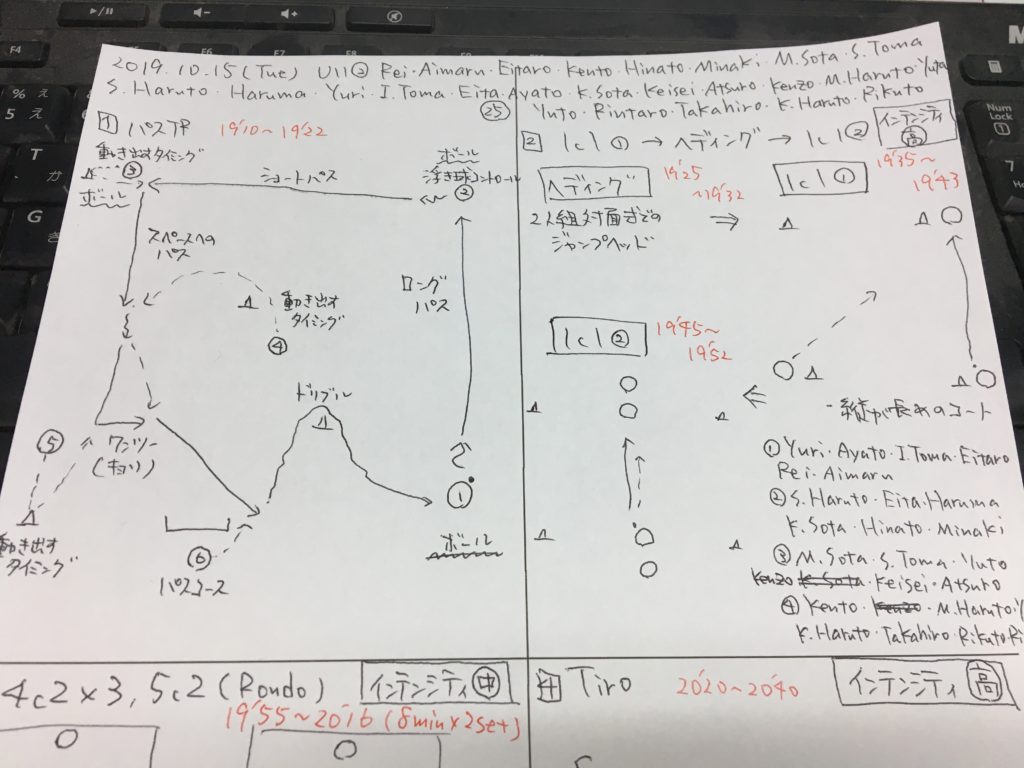 2019.10.15(Tue) U11② Rei・Aimaru・Eitaro・Kento・Hinato・Minaki・M.Sota・S.Toma
S.Haruto・Haruma・Yuri・I.Toma・Eita・Ayato・K.Sota・Keisei・Atsuro・Kenzo・M.Haruto・Yuta
㉕ Yuto・Rintaro・Takahiro・K.Haruto・Rikuto
1 パスTR 19'10～19'22
動き出すタイミング
③
ボール
ショートパス
ボール
浮き球コントロール
②
スペースへの
パス
動き出す
タイミング
④
ロング
パス
ドリブル
⑤
ワンツー
(キョリ)
①
ボール
動き出す
タイミング
⑥
パスコース
2 1c1① → ヘディング → 1c1②
インテンシティ
高
ヘディング 19'25
～19'32
2人組対面での
ジャンプヘッド
1c1① 19'35～
19'43
1c1② 19'45～
19'52
・縦が長めのコート
① Yuri・Ayato・I.Toma・Eitaro
Rei・Aimaru
② S.Haruto・Eita・Haruma
K.Sota・Hinato・Minaki
③ M.Sota・S.Toma・Yuto
Kenzo K.Sota・Keisei・Atsuro
④ Kento・Kenzo・M.Haruto
K.Haruto・Takahiro・Rikuto
4c2×3, 5c2 (Rondo) インテンシティ 中
19'55～20'16 (8min×2set)
4 Tiro 20'20～20'40 インテンシティ 高
F4
F6
% え
5 え
T
か
G
き
Num
Lock
1
7
M